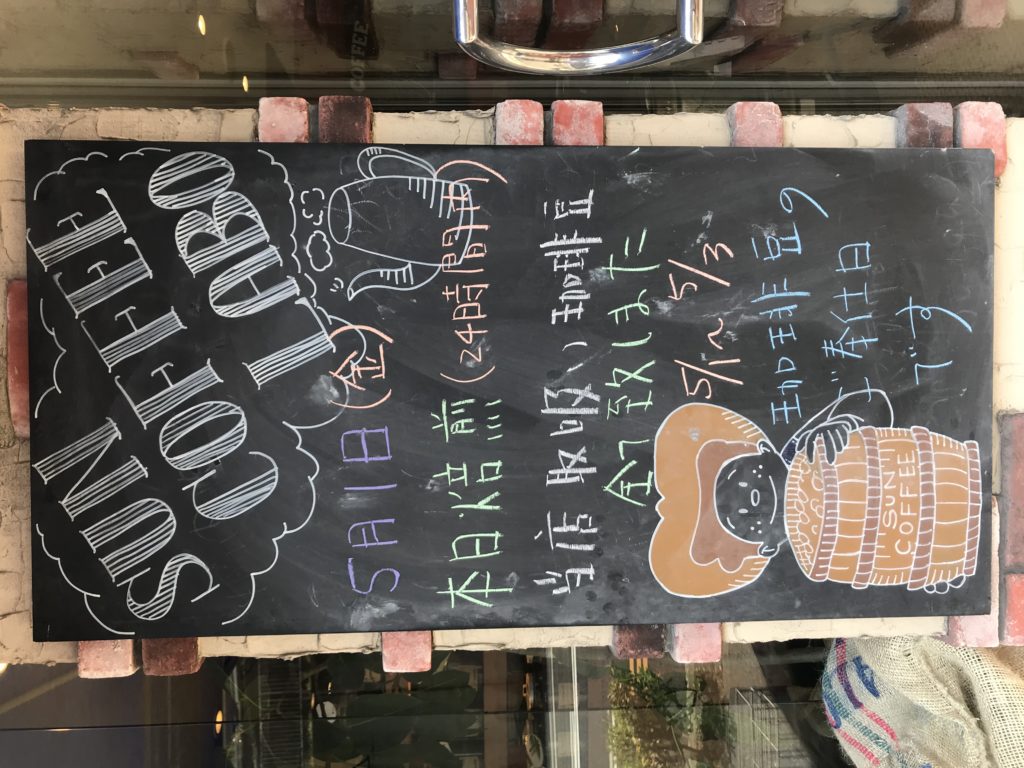 SUN
COFFEE
LABO
5月1日(金)
本日焙煎(24時間
当店取扱い珈琲豆
全て致しまた
5/1〜5/3
珈琲豆の
ご奉仕日
です
SUN
COFFEE
COFFEE